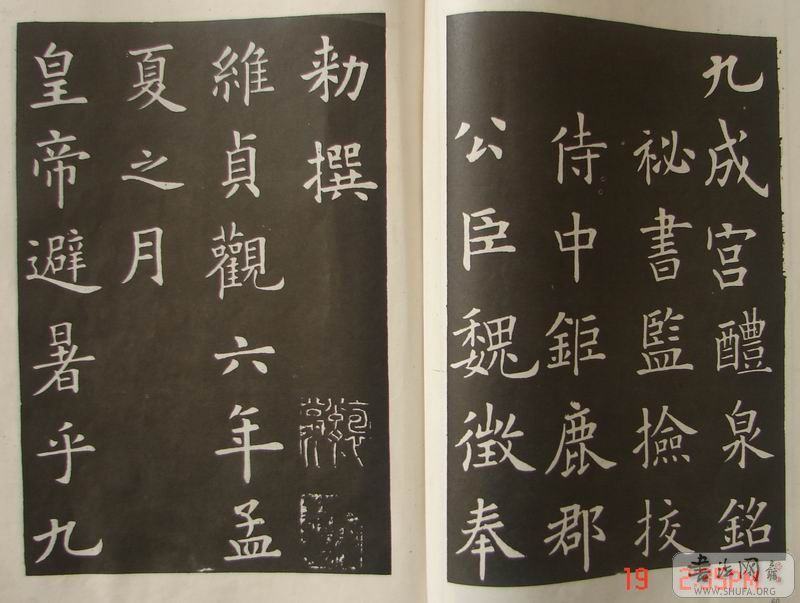 九成宮醴泉銘
祕書監撿挍
侍中鉅鹿郡
公臣魏徵奉
敕撰
維貞觀六年孟
夏之月
皇帝避暑乎九
19 2:35PM
书法网
WWW.SHUFA.ORG
60